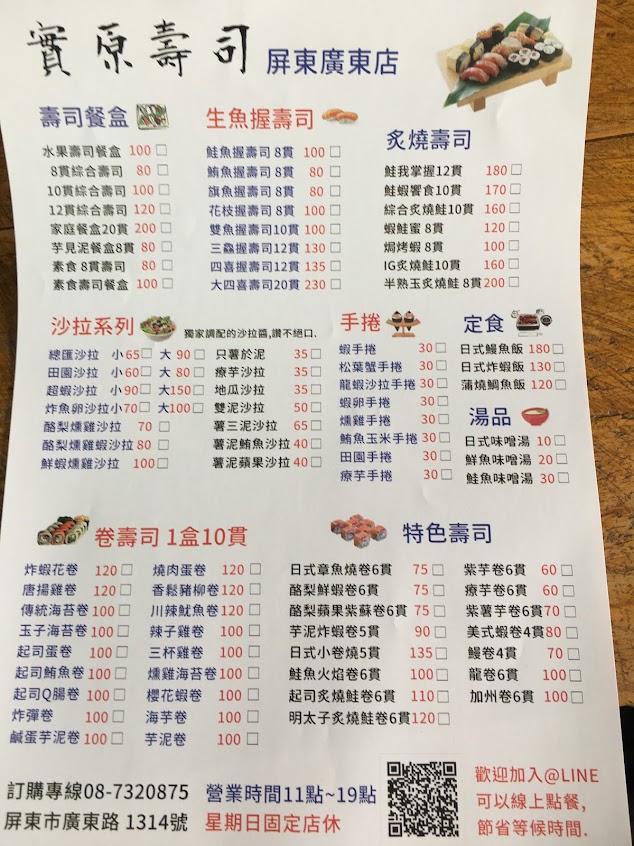 實原壽司 屏東廣東店
壽司餐盒
水果壽司餐盒 100 □
8貫綜合壽司 80 □
10貫綜合壽司 100 □
12貫綜合壽司 120 □
家庭餐盒20貫 200 □
芋見泥餐盒8貫 80 □
素食 8貫壽司 80 □
素食壽司餐盒 100 □
生魚握壽司
鮭魚握壽司 8貫 100 □
鮪魚握壽司 8貫 80 □
旗魚握壽司 8貫 80 □
花枝握壽司 8貫 100 □
雙魚握壽司10貫 100 □
三鱻握壽司12貫 130 □
四喜握壽司12貫 135 □
大四喜壽司20貫 230 □
炙燒壽司
鮭我掌握12貫 180 □
鮭蝦饗食10貫 170 □
綜合炙燒鮭10貫 160 □
蝦鮭蜜 8貫 120 □
焗烤蝦 8貫 100 □
IG炙燒鮭10貫 160 □
半熟玉炙燒鮭 8貫 200 □
沙拉系列 獨家調配的沙拉醬,讚不絕口.
總匯沙拉 小 65□ 大 90 □
田園沙拉 小 60□ 大 80 □
超蝦沙拉 小 90□ 大150 □
炸魚卵沙拉小70□ 大100 □
酪梨燻雞沙拉 70 □
酪梨燻雞蝦沙拉 80 □
鮮蝦燻雞沙拉 100 □
只薯於泥 35 □
療芋沙拉 35 □
地瓜沙拉 35 □
雙泥沙拉 50 □
薯三泥沙拉 65 □
薯泥鮪魚沙拉 40 □
薯泥蘋果沙拉 40 □
手捲
蝦手捲 30 □
松葉蟹手捲 30 □
龍蝦沙拉手捲 30 □
蝦卵手捲 30 □
燻雞手捲 30 □
鮪魚玉米手捲 30 □
田園手捲 30 □
療芋手捲 30 □
定食
日式鰻魚飯 180 □
日式炸蝦飯 130 □
蒲燒鯛魚飯 120 □
湯品
日式味噌湯 10 □
鮮魚味噌湯 20 □
鮭魚味噌湯 30 □
卷壽司 1盒10貫
炸蝦花卷 120 □
唐揚雞卷 120 □
傳統海苔卷 100 □
玉子海苔卷 100 □
起司蛋卷 100 □
起司鮪魚卷 100 □
起司Q腸卷 100 □
炸彈卷 100 □
鹹蛋芋泥卷 100 □
燒肉蛋卷 120 □
香鬆豬柳卷 120 □
川辣魷魚卷 120 □
辣子雞卷 100 □
三杯雞卷 100 □
燻雞海苔卷 100 □
櫻花蝦卷 100 □
海芋卷 100 □
芋泥卷 100 □
特色壽司
日式章魚燒卷6貫 75 □
酪梨鮮蝦卷6貫 75 □
酪梨蘋果紫蘇卷6貫 75 □
芋泥炸蝦卷5貫 90 □
日式小卷燒5貫 135 □
鮭魚火焰卷6貫 100 □
起司炙燒鮭卷6貫 110 □
明太子炙燒鮭卷6貫 120 □
紫芋卷6貫 60 □
療芋卷6貫 60 □
紫薯芋卷6貫 70 □
美式蝦卷4貫 80 □
鰻卷4貫 70 □
龍卷6貫 100 □
加州卷6貫 100 □
訂購專線08-7320875
屏東市廣東路 1314號
營業時間11點~19點
星期日固定店休
歡迎加入@LINE
可以線上點餐,
節省等候時間.